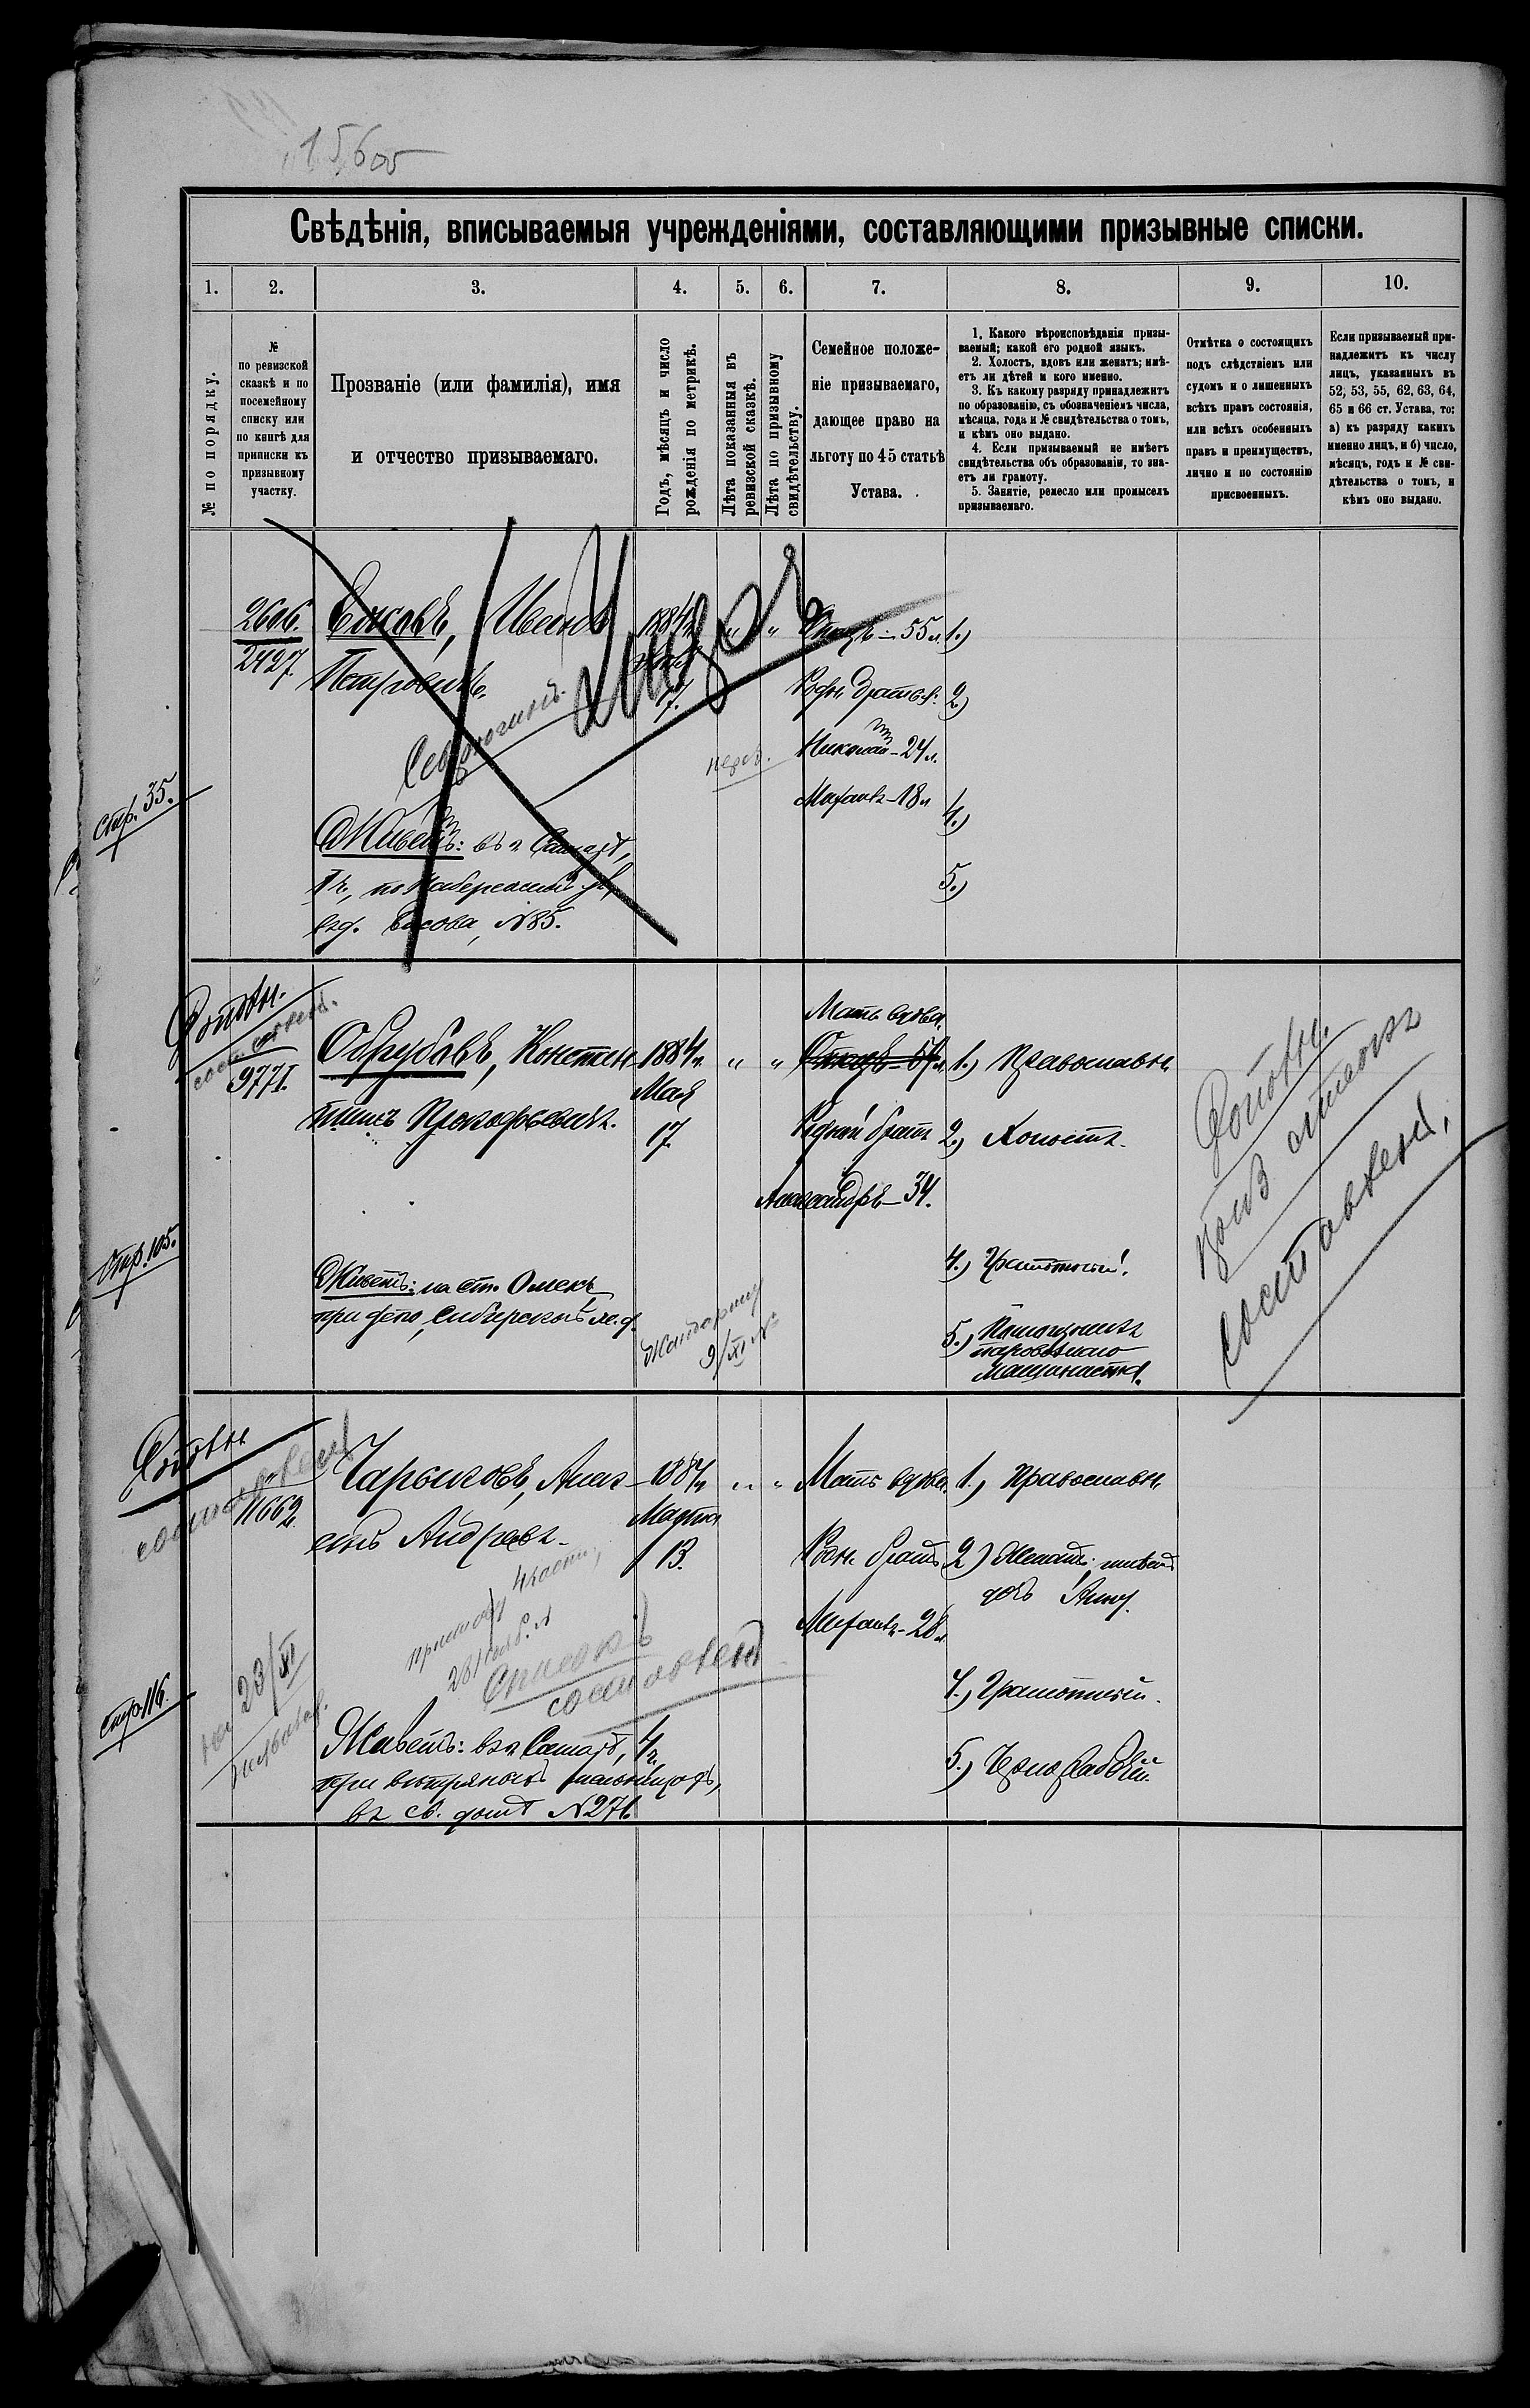 Свѣдѣнія, вписываемыя учрежденіями, составляющими призывные списки.
1. 2. 3. 4. 5. 6. 7. 8. 9. 10.
№ по порядку.
№
по ревизской
сказкѣ и по
посемейному
списку или
по книгѣ для
приписки къ
призывному
участку.
Прозваніе (или фамилія), имя
и отчество призываемаго.
Годъ, мѣсяцъ и число
рожденія по метрикѣ.
Лѣта показанныя въ
ревизской сказкѣ.
Лѣта по призывному
свидѣтельству.
Семейное положе-
ніе призываемаго,
дающее право на
льготу по 45 статьѣ
Устава.
1. Какого вѣроисповѣданія призы-
ваемый; какой его родной языкъ.
2. Холостъ, вдовъ или женатъ; имѣ-
етъ ли дѣтей и кого именно.
3. Къ какому разряду принадлежитъ
по образованію, съ обозначеніемъ числа,
мѣсяца, года и № свидѣтельства о томъ,
и кѣмъ оно выдано.
4. Если призываемый не имѣетъ
свидѣтельства объ образованіи, то зна-
етъ ли грамоту.
5. Занятіе, ремесло или промыселъ
призываемаго.
Отмѣтка о состоящихъ
подъ слѣдствіемъ или
судомъ и о лишенныхъ
всѣхъ правъ состоянія,
или всѣхъ особенныхъ
правъ и преимуществъ,
лично и по состоянію
присвоенныхъ.
Если призываемый при-
надлежитъ къ числу
лицъ, указанныхъ въ
52, 53, 55, 62, 63, 64,
65 и 66 ст. Устава, то:
а) къ разряду какихъ
именно лицъ, и б) число,
мѣсяцъ, годъ и № сви-
дѣтельства о томъ, и
кѣмъ оно выдано.
стр. 35.
2606.
2427.
Иванъ
Петровичъ.
1884 г.
17.
" "
Отецъ – 55 л.
Родн. братья:
Николай – 24 л.
Михаилъ – 18 л
1.)
2)
4.)
5.)
Живетъ: въ г. Самарѣ,
1 ч., по Набережной ул,
въ д. №85.
Стр. 105.
9771.
Обрубовъ, Констан-
тинъ Прокофьевичъ.
1884 г.
Мая
17.
" "
Мать вдова.
Отецъ
Родной братъ
Александръ – 34.
1.) Православн.
2.) Холостъ.
4.) Грамотный.
5.) Помощникъ
паровознаго
машиниста.
Живетъ: на ст. Омскъ
при депо, Сибирской ж. д.
Жандарму
9/XI
составленъ.
Стр. 116.
11662
Чарыковъ, Алек-
сѣй Андреевъ.
1884 г.
Марта
13.
" "
Мать вдова.
Родн. братъ
Михаилъ – 28 л
1.) Православн.
2.) Женатъ; имѣетъ
дочь Анну.
4.) Грамотный.
5.) Чернорабочій.
приставу 4 части,
Списокъ
составленъ
23/XI
Живетъ: въ г. Самарѣ, 4 ч.
при вѣтряной мельницѣ,
въ св. домѣ №276